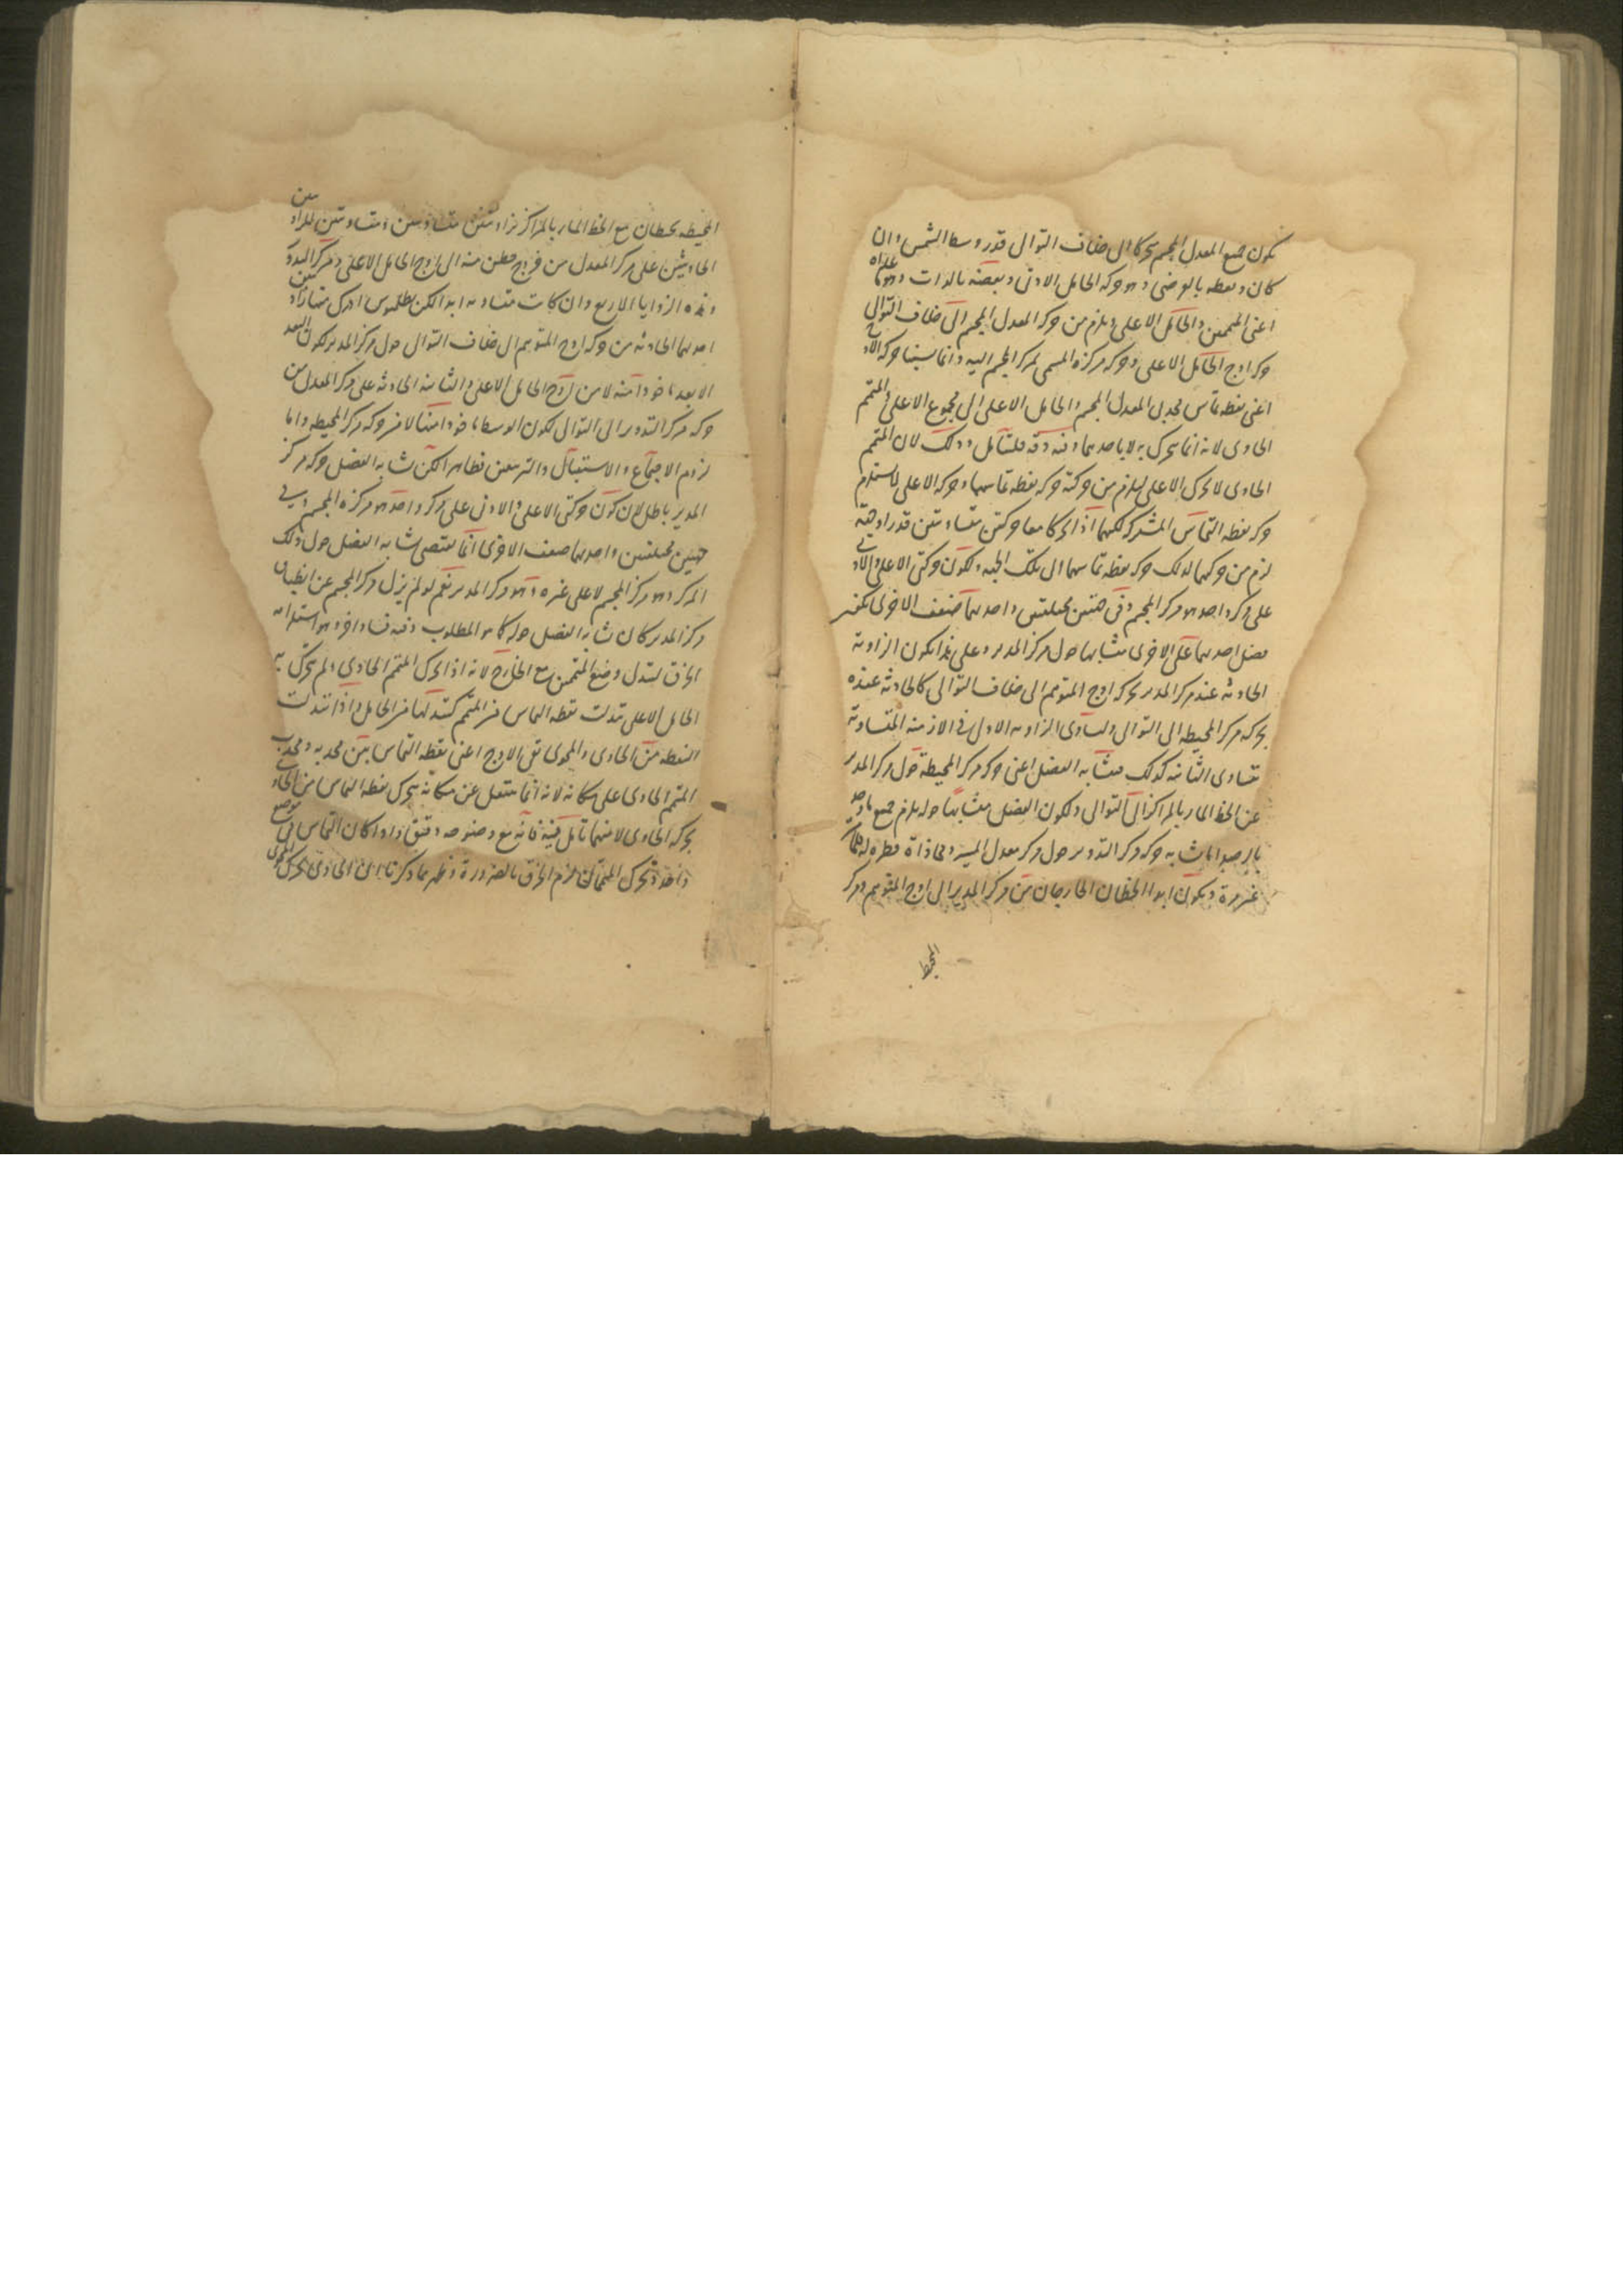 يكون جميع المعدل المجسم متحركا الى خلاف التوالى قدر وسط الشمس وان
كان بعضه بالعرض وهو حركة الحامل الادنى وبعضه بالذات وهو ما عداه
اعنى المتممين والحامل الاعلى ويلزم من حركة المعدل المجسم الى خلاف التوالى
حركة اوج الحامل الاعلى وحركة مركزه المسمى بمركز المجسم اليه وانما نسبنا حركة الاوج
اعنى نقطة تماس محدبى المعدل المجسم والحامل الاعلى الى مجموع الاعلى والمتمم
الحاوى لانه انما يتحرك به لا باحدهما وفيه دقة فليتأمل وذلك لان المتمم
الحاوى لا يحرك الاعلى ليلزم من حركته حركة نقطة تماسهما وحركة الاعلى لا يستلزم
حركة نقطة التماس المشتركة لكنهما اذا تحركا معا حركتين متساويتين قدرا وجهة
لزم من حركتهما كذلك حركة نقطة تماسهما الى تلك الجهة ولكون حركتى الاعلى والادنى
على مركز واحد هو مركز المجسم وفى جهتين مختلفتين واحديهما ضعف الاخرى يكون
فضل احديهما على الاخرى متشابها حول مركز المدير وعلى هذا يكون الزاوية
الحادثة عند مركز المدير بحركة اوج المتوهم الى خلاف التوالى كالحادثة عنده
بحركة مركز المحيطة الى التوالى ولتساوى الزاوية الاولى فى الازمنة المتساوية
تتساوى الثانية كذلك فتشابه الفضل اعنى حركة مركز المحيطة حول مركز المدير
عن الخط المار بالمراكز الى التوالى ولكون الفضل متشابها حوله يلزم جميع ما وجد
بالرصد اما تشابه حركة مركز التدوير حول مركز معدل المسير ومحاذاة قطره له
غير مرة ويكون ابدا الخطان الخارجان من مركز المدير الى اوج المتوهم ومركز
المحيطة
المحيطة يحيطان مع الخط المار بالمراكز بزاويتين متساويتين ومتساويتين للزاويتين
الحادثتين على مركز المعدل من خروج خطين منه الى اوج الحامل الاعلى ومركز التدوير
وهذه الزوايا الاربع وان كانت متساوية ابدا لكن بطلميوس ادرك منها زاويتين
احديهما الحادثة من حركة اوج المتوهم الى خلاف التوالى حول مركز المدير لكون البعد
الابعد ماخوذا منه لا من اوج الحامل الاعلى والثانية الحادثة على مركز المعدل من
حركة مركز التدوير الى التوالى لكون الوسط ماخوذا منها لا من حركة مركز المحيطة واما
لزوم الاجتماع والاستقبال والتربيعين فظاهر لكن تشابه الفضل وحركة مركز
المدير باطل لان كون حركتى الاعلى والادنى على مركز واحد هو مركزه المجسم وفى
جهتين مختلفتين واحديهما ضعف الاخرى انما يقتضى تشابه الفضل حول ذلك
المركز وهو مركز المجسم لا على غيره وهو مركز المدير نعم لو لم يزل مركز المجسم عن انطباق
مركز المدير كان تشابه الفضل حوله كما هو المطلوب وفيه فساد اخر وهو استلزامه
الخرق لتبدل وضع المتممين مع الخارج لانه اذا تحرك المتمم الحاوى ولم يتحرك به
الحامل الاعلى تبدلت نقطة التماس من المتمم كتبدلها من الحامل واذا تبدلت
النقطة من الحاوى والمحوى بقى الاوج اعنى نقطة التماس بين محدبه ومحدب
المتمم الحاوى على مكانه لانه انما ينتقل عن مكانه بتحرك نقطة التماس من الحاوى
بحركة الحاوى لا منهما تأمل فيه فانه مع وضوحه دقيق واذا كان التماس فى موضع
واحد وتحرك المتممان لزم الخرق بالضرورة وظهر مما ذكرنا ان الحاوى يتحرك المحوى